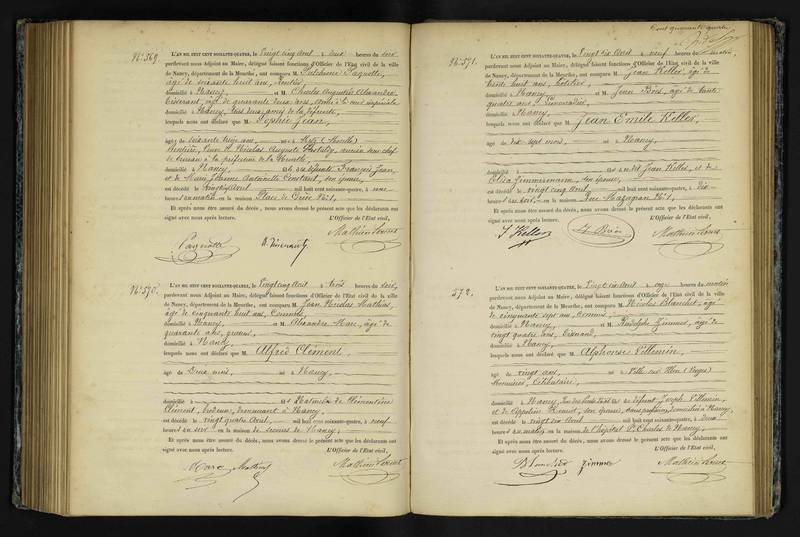 N° 569.
L'AN MIL HUIT CENT SOIXANTE-QUATRE, le Vingt cinq Avril à deux heures du soir
pardevant nous Adjoint au Maire, délégué faisant fonctions d'Officier de l'Etat civil de la ville
de Nancy, département de la Meurthe, ont comparu M. Paquotte,
âgé de soixante huit ans, Rentier
domicilié à Nancy, et M. Charles Augustin Alexandre
âgé de quarante deux ans,
domicilié à Nancy, tous deux amis de la défunte,
lesquels nous ont déclaré que M. Sophie Jean,
âgée de soixante treize ans, née à Metz (Moselle)
Rentière, Veuve de Nicolas Auguste ancien sous chef
de bureau à la préfecture de la Meurthe,
domiciliée à Nancy, et à défunts François Jean,
et de Marie Jeanne Antoinette Constant, son épouse,
est décédé le vingt cinq Avril mil huit cent soixante-quatre, à onze
heures du matin en la maison Place de Grève N° 1,
Et après nous être assuré du décès, nous avons dressé le présent acte que les déclarants ont
signé avec nous après lecture. L'Officier de l'Etat civil,
Paquotte
N° 570.
L'AN MIL HUIT CENT SOIXANTE-QUATRE, le Vingt cinq Avril à trois heures du soir,
pardevant nous Adjoint au Maire, délégué faisant fonctions d'Officier de l'Etat civil de la ville
de Nancy, département de la Meurthe, ont comparu M. Jean Nicolas Mathieu,
âgé de cinquante huit ans, Commis,
domicilié à Nancy, et M. Alexandre Marc, âgé de
quarante ans,
domicilié à Nancy
lesquels nous ont déclaré que M. Alfred Clément,
âgé de Deux mois, né à Nancy,
domicilié à et Naturel de Clémentine
Clément, brodeuse, demeurant à Nancy,
est décédé le vingt quatre Avril, mil huit cent soixante-quatre, à neuf
heures du soir en la maison de Secours de Nancy,
Et après nous être assuré du décès, nous avons dressé le présent acte que les déclarants ont
signé avec nous après lecture. L'Officier de l'Etat civil,
Marc Mathieu
Cent quarante quatre
N° 571.
L'AN MIL HUIT CENT SOIXANTE-QUATRE, le Vingt six Avril à neuf heures du matin,
pardevant nous Adjoint au Maire, délégué faisant fonctions d'Officier de l'Etat civil de la ville
de Nancy, département de la Meurthe, ont comparu M. Jean Keller, âgé de
trente huit ans,
domicilié à Nancy, et M. Jean âgé de trente
quatre ans,
domicilié à Nancy,
lesquels nous ont déclaré que M. Jean Emile Keller,
âgé de dix sept mois, né à Nancy,
domicilié à et du dit Jean Keller, et de
Elisa Zimmermann, son épouse,
est décédé le vingt cinq Avril, mil huit cent soixante-quatre, à dix
heures du soir, en la maison Rue Mazagran N° 1,
Et après nous être assuré du décès, nous avons dressé le présent acte que les déclarants ont
signé avec nous après lecture. L'Officier de l'Etat civil,
J Keller
572.
L'AN MIL HUIT CENT SOIXANTE-QUATRE, le Vingt six Avril à onze heures du matin
pardevant nous Adjoint au Maire, délégué faisant fonctions d'Officier de l'Etat civil de la ville
de Nancy, département de la Meurthe, ont comparu M. Nicolas Blanchet, âgé
de cinquante sept ans, Commis,
domicilié à Nancy, et M. Rodolphe Zimmer, âgé de
vingt quatre ans,
domicilié à Nancy,
lesquels nous ont déclaré que M. Alphonse Villemin,
âgé de vingt ans, né à Ville sur Illon (Vosges)
Célibataire,
domicilié à Nancy, et de défunt Joseph Villemin,
et de son épouse, sans profession, domiciliée à Nancy,
est décédé le vingt six Avril mil huit cent soixante-quatre, à deux
heures du matin en la maison de l'hôpital St Charles de Nancy,
Et après nous être assuré du décès, nous avons dressé le présent acte que les déclarants ont
signé avec nous après lecture. L'Officier de l'Etat civil,
Zimmer